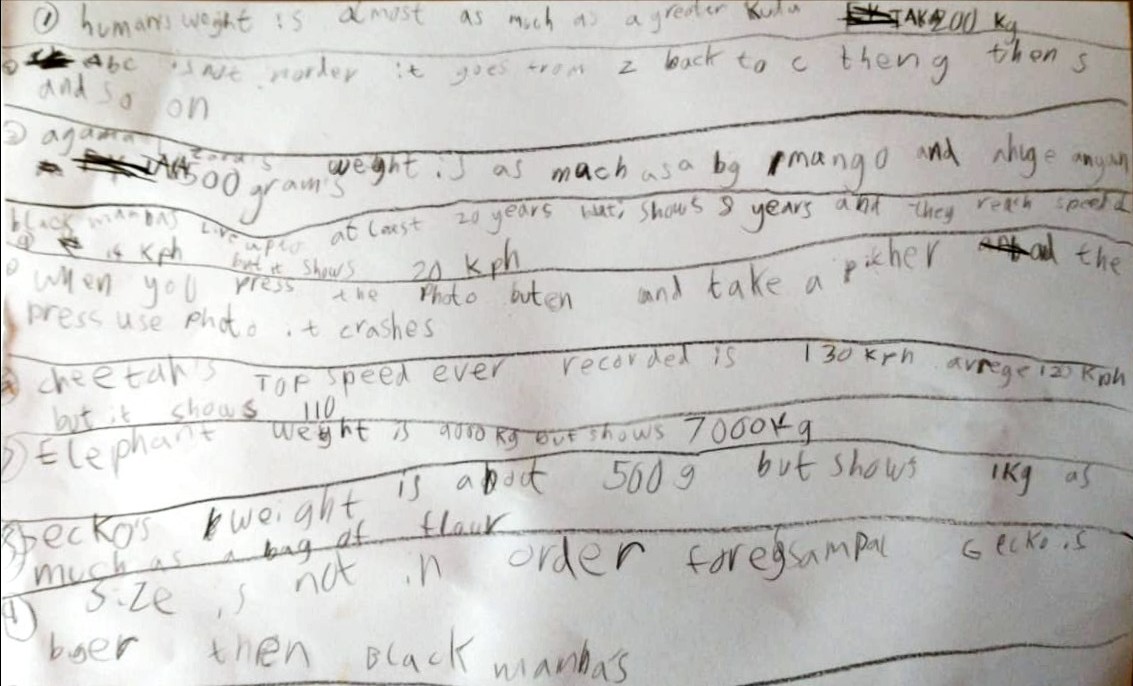 ① humans weight is almost as much as a greater kudu TAK 200 kg
Abc is not norder it goes from z back to c then g then s
and so on
agama weght is as mach as a bg mango and ahuge
500 gram's
black mambas Live upto at least 20 years but shows 8 years and they reach speed
is Kph but it shows 20 kph
when you press the Photo buten and take a picher ad the
press use photo it crashes
cheetah's TOP speed ever recorded is 130 Kph avrege 120 Kph
but it shows 110
Elephant weght is 9000 kg but shows 7000kg
ecko's weight is about 500g but shows 1Kg as
much as a bag of flour
size is not in order foregsampal Gecko is
biger then BLack manba's